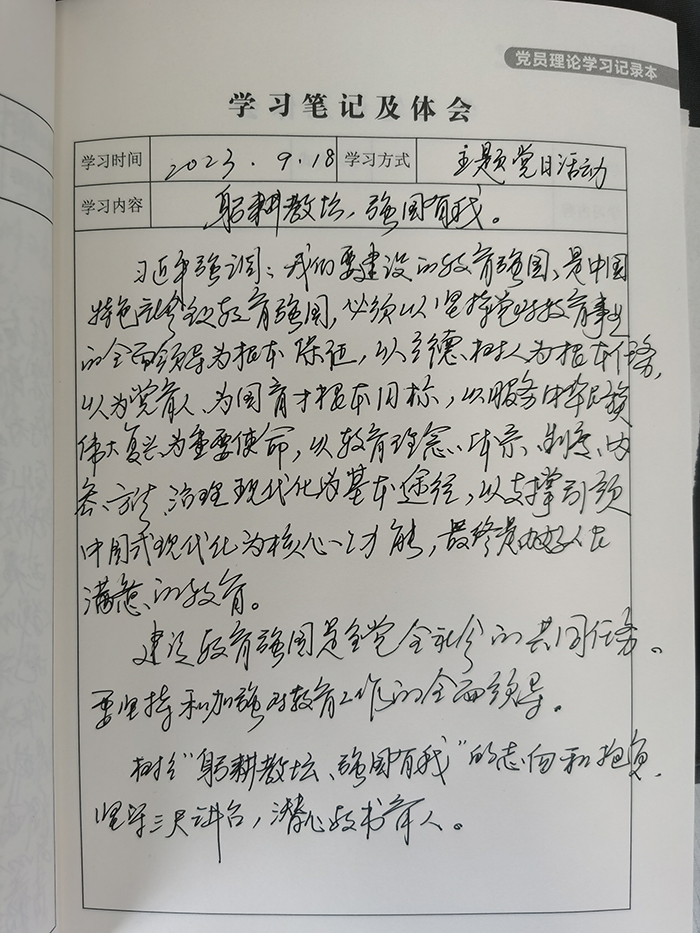 党员理论学习记录本
学习笔记及体会
学习时间 2023.9.18 学习方式 主题党日活动
学习内容 躬耕教坛，强国有我。
习近平强调：我们要建设的教育强国，是中国
特色社会主义教育强国，必须以坚持党对教育事业
的全面领导为根本保证，以立德树人为根本任务，
以为党育人、为国育才根本目标，以服务中华民族
伟大复兴为重要使命，以教育理念、体系、制度、内
容、方法、治理现代化为基本途径，以支撑引领
中国式现代化为核心功能，最终是办好人民
满意的教育。
建设教育强国是全党全社会的共同任务。
要坚持和加强对教育工作的全面领导。
树立“躬耕教坛、强国有我”的志向和抱负，
坚守三尺讲台，潜心教书育人。